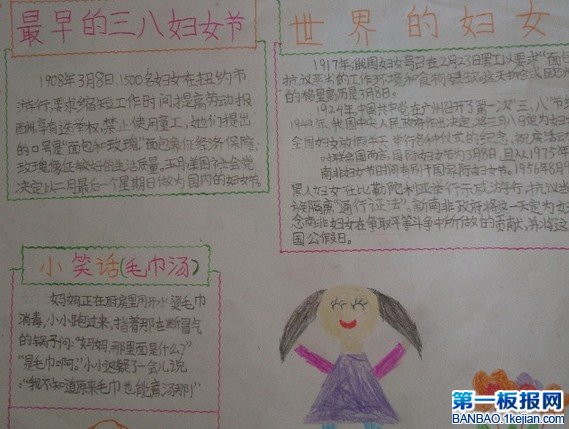 最早的三八妇女节
1908年3月8日,1500名妇女在纽约市
游行,要求缩短工作时间,提高劳动报
酬,享有选举权,禁止使用童工。她们提出
的口号是“面包和玫瑰”面包象征经济保障,
玫瑰像征较好的生活质量。五月,美国社会党
决定以二月最后一个星期日做为国内的妇女节。
世界的妇女
1917年,俄国妇女号召在2月23日罢工以要求“面包
抗议恶劣的工作环境和食物
的格里高历是3月8日。
1924年,中国共产党在广州召开了第一次“三八”节
1949年,我国中央人民政府作出决定,将三月八日定为妇
全国妇女放假半天,举行各种仪式的纪念,祝庆活动
对联合国而言,国际妇女节为3月8日,且从1975年
南非妇女节日期有别于国际妇女节。1956年8月9
黑人妇女在比勒陀利亚举行示威游行,抗议当
族隔离“通行证法”,新南非政府将这一天定为
念南非妇女在争取平等斗争中所做的贡献,并将这
国公假日。
小笑话(毛巾汤)
妈妈正在厨房里用开水烫毛巾
消毒,小小跑过来,指着那在断冒气
的锅子问:“妈妈,那里面是什么?”
“是毛巾啊。”小小迟疑了一会儿说:
“我不知道原来毛巾也能煮汤那!”
第一板报网
BANBAO.1kejian.com